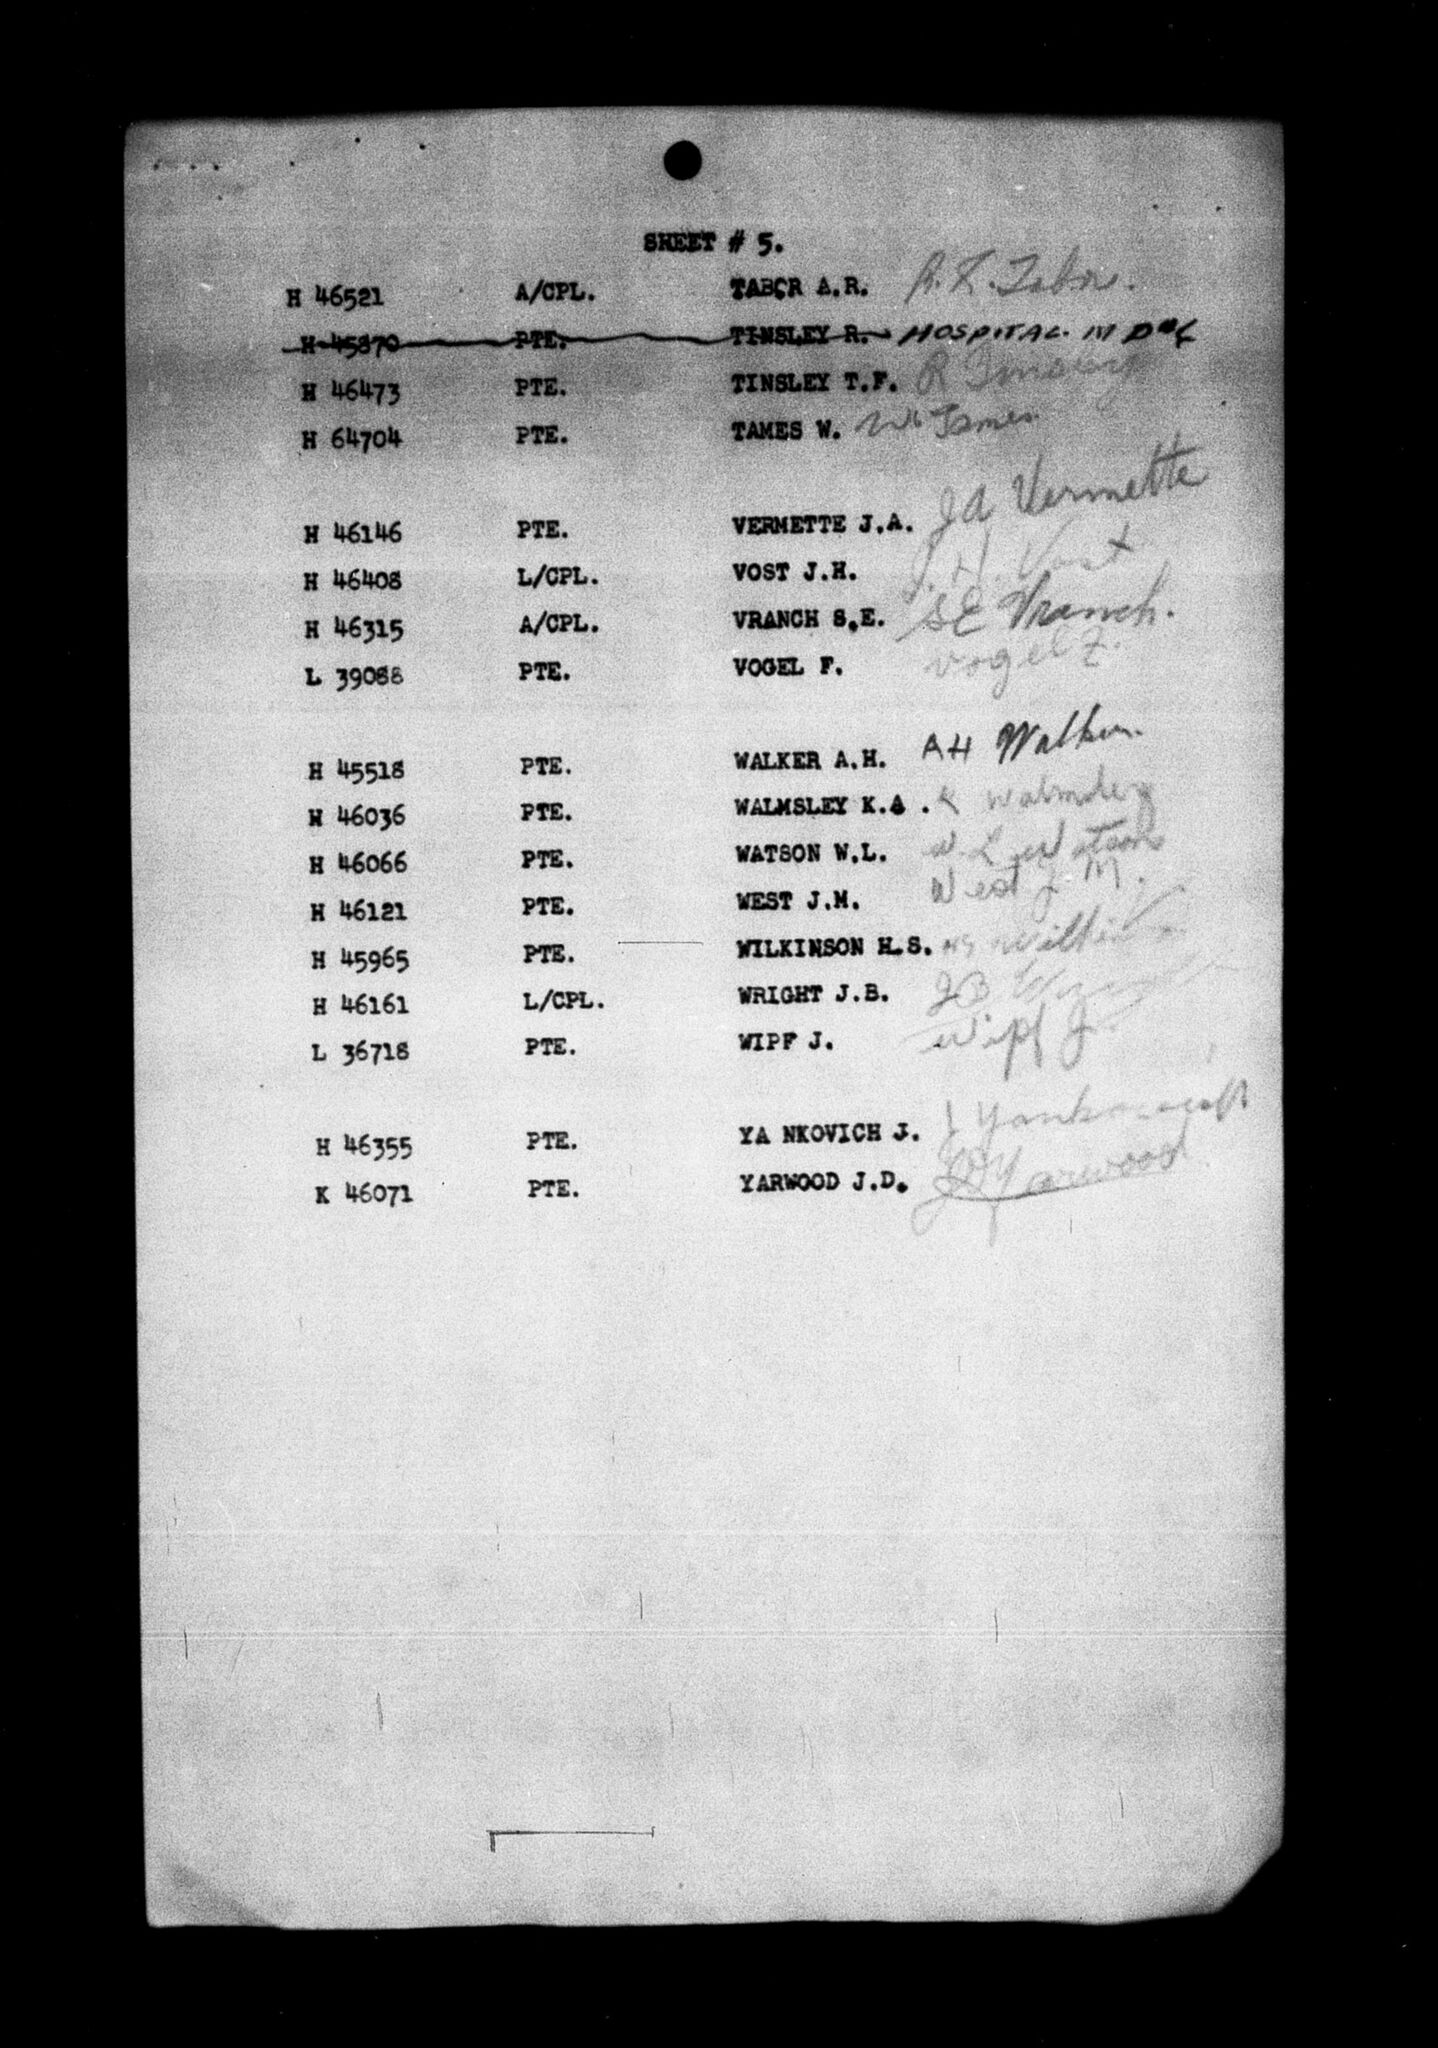 SHEET # 5.
H 46521 A/CPL. TABOR A.R. Tabor.
H 45870 PTE. TINSLEY R. HOSPITAL
H 46473 PTE. TINSLEY T.F. R Tinsley
H 64704 PTE. TAMES W. Wm Tames
H 46146 PTE. VERMETTE J.A. J A Vermette
H 46408 L/CPL. VOST J.H. J. H. Vost
H 46315 A/CPL. VRANCH S.E. S E Vranch.
L 39088 PTE. VOGEL F. Vogel F.
H 45518 PTE. WALKER A.H. A H Walker
H 46036 PTE. WALMSLEY K.A. K Walmsley
H 46066 PTE. WATSON W.L. W. L. Watson
H 46121 PTE. WEST J.M. West J. M.
H 45965 PTE. WILKINSON H.S. HS Wilkinson
H 46161 L/CPL. WRIGHT J.B. J B Wright
L 36718 PTE. WIPF J. Wipf J.
H 46355 PTE. YA NKOVICH J. J
K 46071 PTE. YARWOOD J.D. J D Yarwood